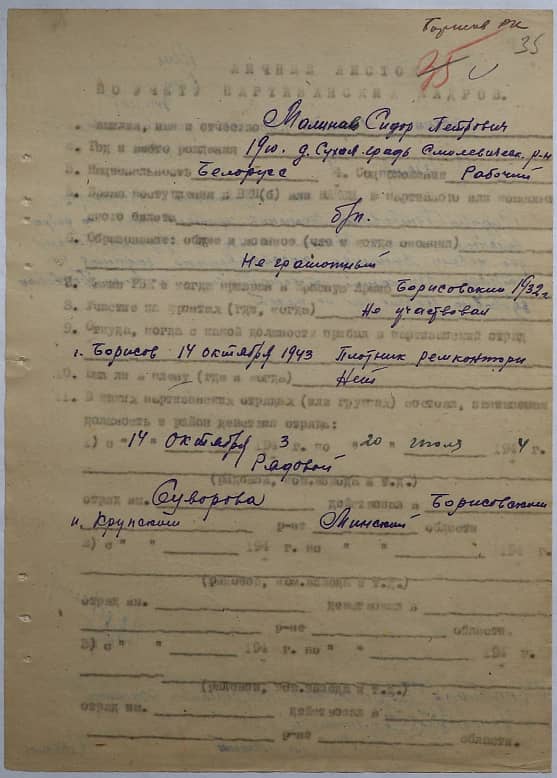 Борисов РК
35
35
ЛИЧНЫЙ ЛИСТОК
ПО УЧЕТУ ПАРТИЗАНСКИХ КАДРОВ.
1. Фамилия, имя и отчество Малинав Сидор Петрович
2. Год и место рождения 19 д. Сухая-градь Смолевическ. р-н
3. Национальность Белорусс 4. Соцположение Рабочий
5. Время поступления в ВКП(б) или ВЛКСМ, № партийного или комсомоль-
ского билета б/п.
6. Образование: общее и военное (что и когда окончил)
Не грамотный
7. Каким РВК и когда призван в Красную Армию Борисовский 1932 г
8. Участие на фронтах (где, когда) Не участвовал
9. Откуда, когда с какой должности прибыл в партизанский отряд
г. Борисов 14 октября 1943 Плотник ремконтори
10. Был ли в плену (где и когда) Нет
11. В каких партизанских отрядах (или группах) состоял, занимаемая
должность и район действия отряда:
1) с "14" октября 1943 по "20" июля 1944 г.
Рядовой
(рядовой, ком.взвода и т.д.)
отряд им. Суворова действовал в Борисовским
и Крупским р-не Минский области
2) с " " 194 г. по " " 194 г.
(рядовой, ком.взвода и т.д.)
отряд им. действовал в
р-не области.
3) с " " 194 г. по " " 194 г.
(рядовой, ком.взвода и т.д.)
отряд им. действовал в
р-не области.